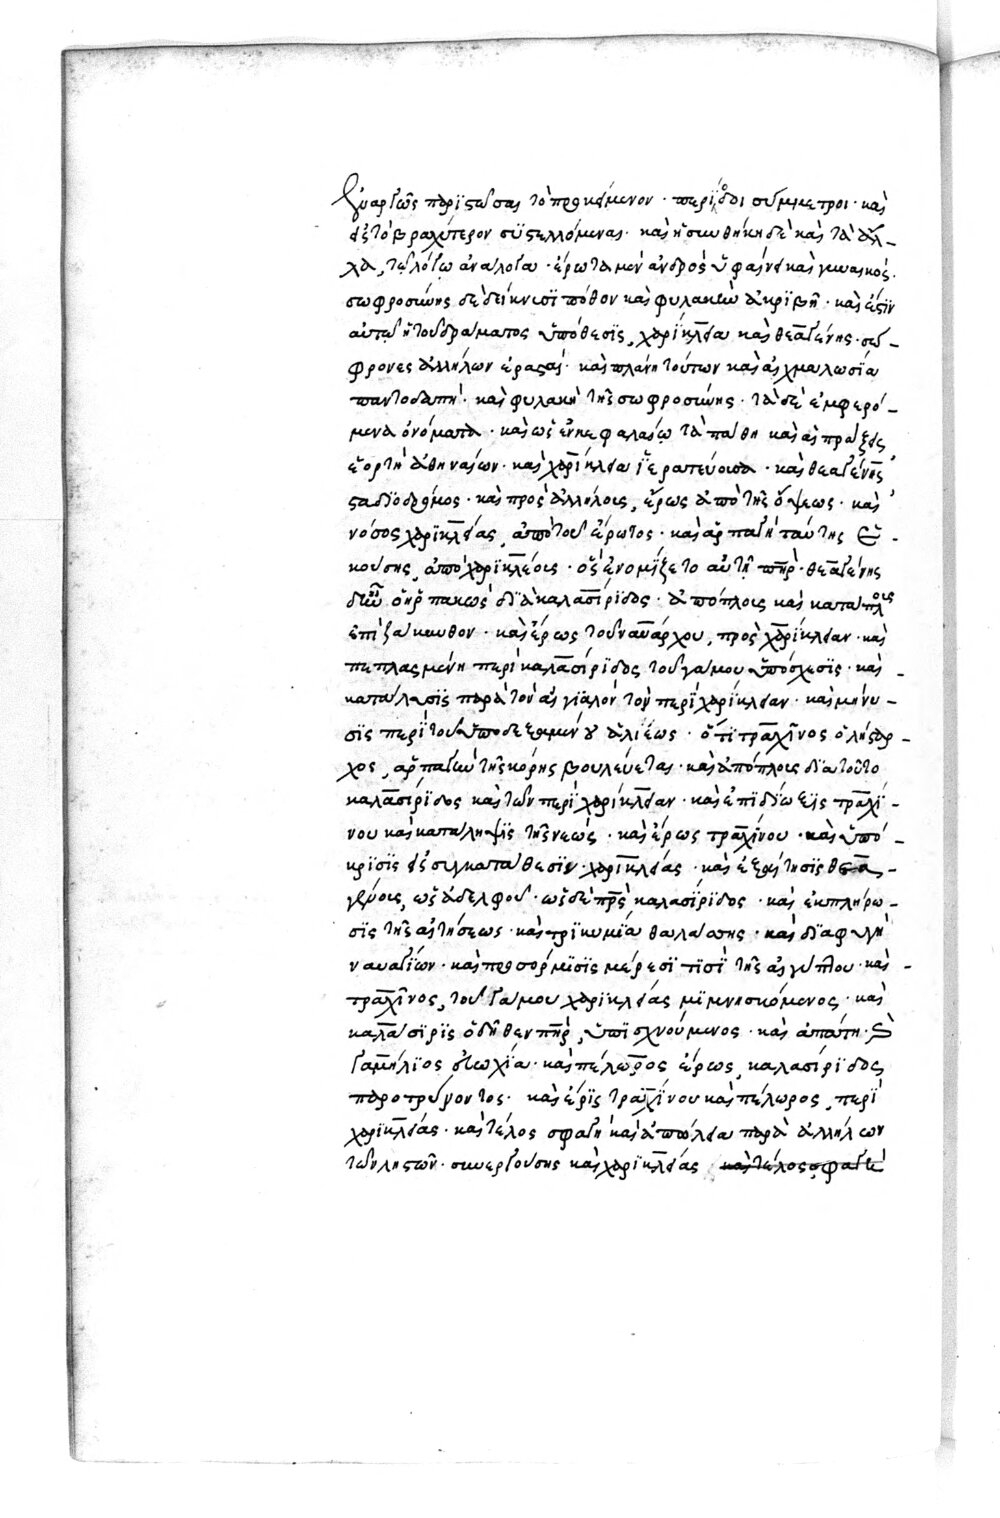 ἐναργῶς παριστῶσαι τὸ προκείμενον · περίοδοι σύμμετροι · καὶ
εἰς τὸ βραχύτερον συστελλόμεναι · καὶ ἡ συνθήκη δὲ καὶ τὰ ἄλ-
λα, τῷ λόγῳ ἀνάλογα · ἔρωτα μὲν ἀνδρὸς ὑφαίνει καὶ γυναικός ·
σωφροσύνης δὲ δείκνυσι πόθον καὶ φυλακὴν ἀκριβῆ · καὶ ἔστιν
αὐτῷ ἡ τοῦ δράματος ὑπόθεσις, χαρίκλεια καὶ θεαγένης · σώ-
φρονες ἀλλήλων ἐρασταί · καὶ πλάνη τούτων καὶ αἰχμαλωσία
παντοδαπή · καὶ φυλακὴ τῆς σωφροσύνης · τὰ δὲ ἐμφερό-
μενα ὀνόματα · καὶ ὡς ἐν κεφαλαίῳ τὰ πάθη καὶ αἱ πράξεις
ἑορτὴ ἀθηναίων · καὶ χαρίκλεια ἱερατεύουσα · καὶ θεαγένης
σταδιοδρόμος · καὶ πρὸς ἀλλήλους, ἔρως ἀπὸ τῆς ὄψεως · καὶ
νόσος χαρικλείας, ἀπὸ τοῦ ἔρωτος · καὶ ἁρπαγὴ ταύτης ἑ-
κούσης, ἀπὸ χαρικλέους · ὃς ἐνομίζετο αὐτῇ πὴρ · θεαγένης
ἦν ὁ ἡρπακὼς διὰ καλασίριδος · ἀπόπλους καὶ κατάπλους
ἐπὶ ζάκυνθον · καὶ ἔρως τοῦ ναυάρχου, πρὸς χαρίκλειαν · καὶ
πεπλασμένη περὶ καλασίριδος τοῦ γάμου ὑπόσχεσις · καὶ
κατάλυσις παρὰ τὸν αἰγιαλὸν τῶν περὶ χαρίκλειαν · καὶ μήνυ-
σις περὶ τοῦ ὑποδεξαμένου ἁλιέως · ὅτι τραχῖνος ὁ λήσταρ-
χος, ἁρπαγὴν τῆς κόρης βουλεύεται · καὶ ἀπόπλους διὰ τοῦτο
καλασίριδος καὶ τῶν περὶ χαρίκλειαν · καὶ ἐπιδίωξις τραχί-
νου καὶ κατάληψις τῆς νεώς · καὶ ἔρως τραχίνου · καὶ ὑπό-
κρισις εἰς συγκατάθεσιν · χαρικλείας · καὶ ἐξαίτησις θεα-
γένους, ὡς ἀδελφοῦ · ὡς δὲ πρς καλασίριδος · καὶ ἐκπλήρω-
σις τῆς αἰτήσεως · καὶ τρικυμία θαλάσσης · καὶ διαφυγὴ
ναυαγίων · καὶ προσόρμισις μέρεσί τισι τῆς αἰγύπτου · καὶ
τραχῖνος, τοῦ γάμου χαρικλείας μιμνησκόμενος · καὶ
καλάσιρις ὁ δῆθεν πὴρ, ὑπισχνούμενος · καὶ ἀπάτη ·
γαμήλιος εὐωχία · καὶ πέλωρος ἔρως, καλασίριδος
παροτρύνοντος · καὶ ἔρις τραχίνου καὶ πέλωρος, περὶ
χαρικλείας · καὶ τέλος σφαγὴ καὶ ἀπώλεια παρὰ ἀλλήλων
τῶν λῃστῶν · συνεργούσης καὶ χαρικλείας καὶ τέλος σφαγὴ